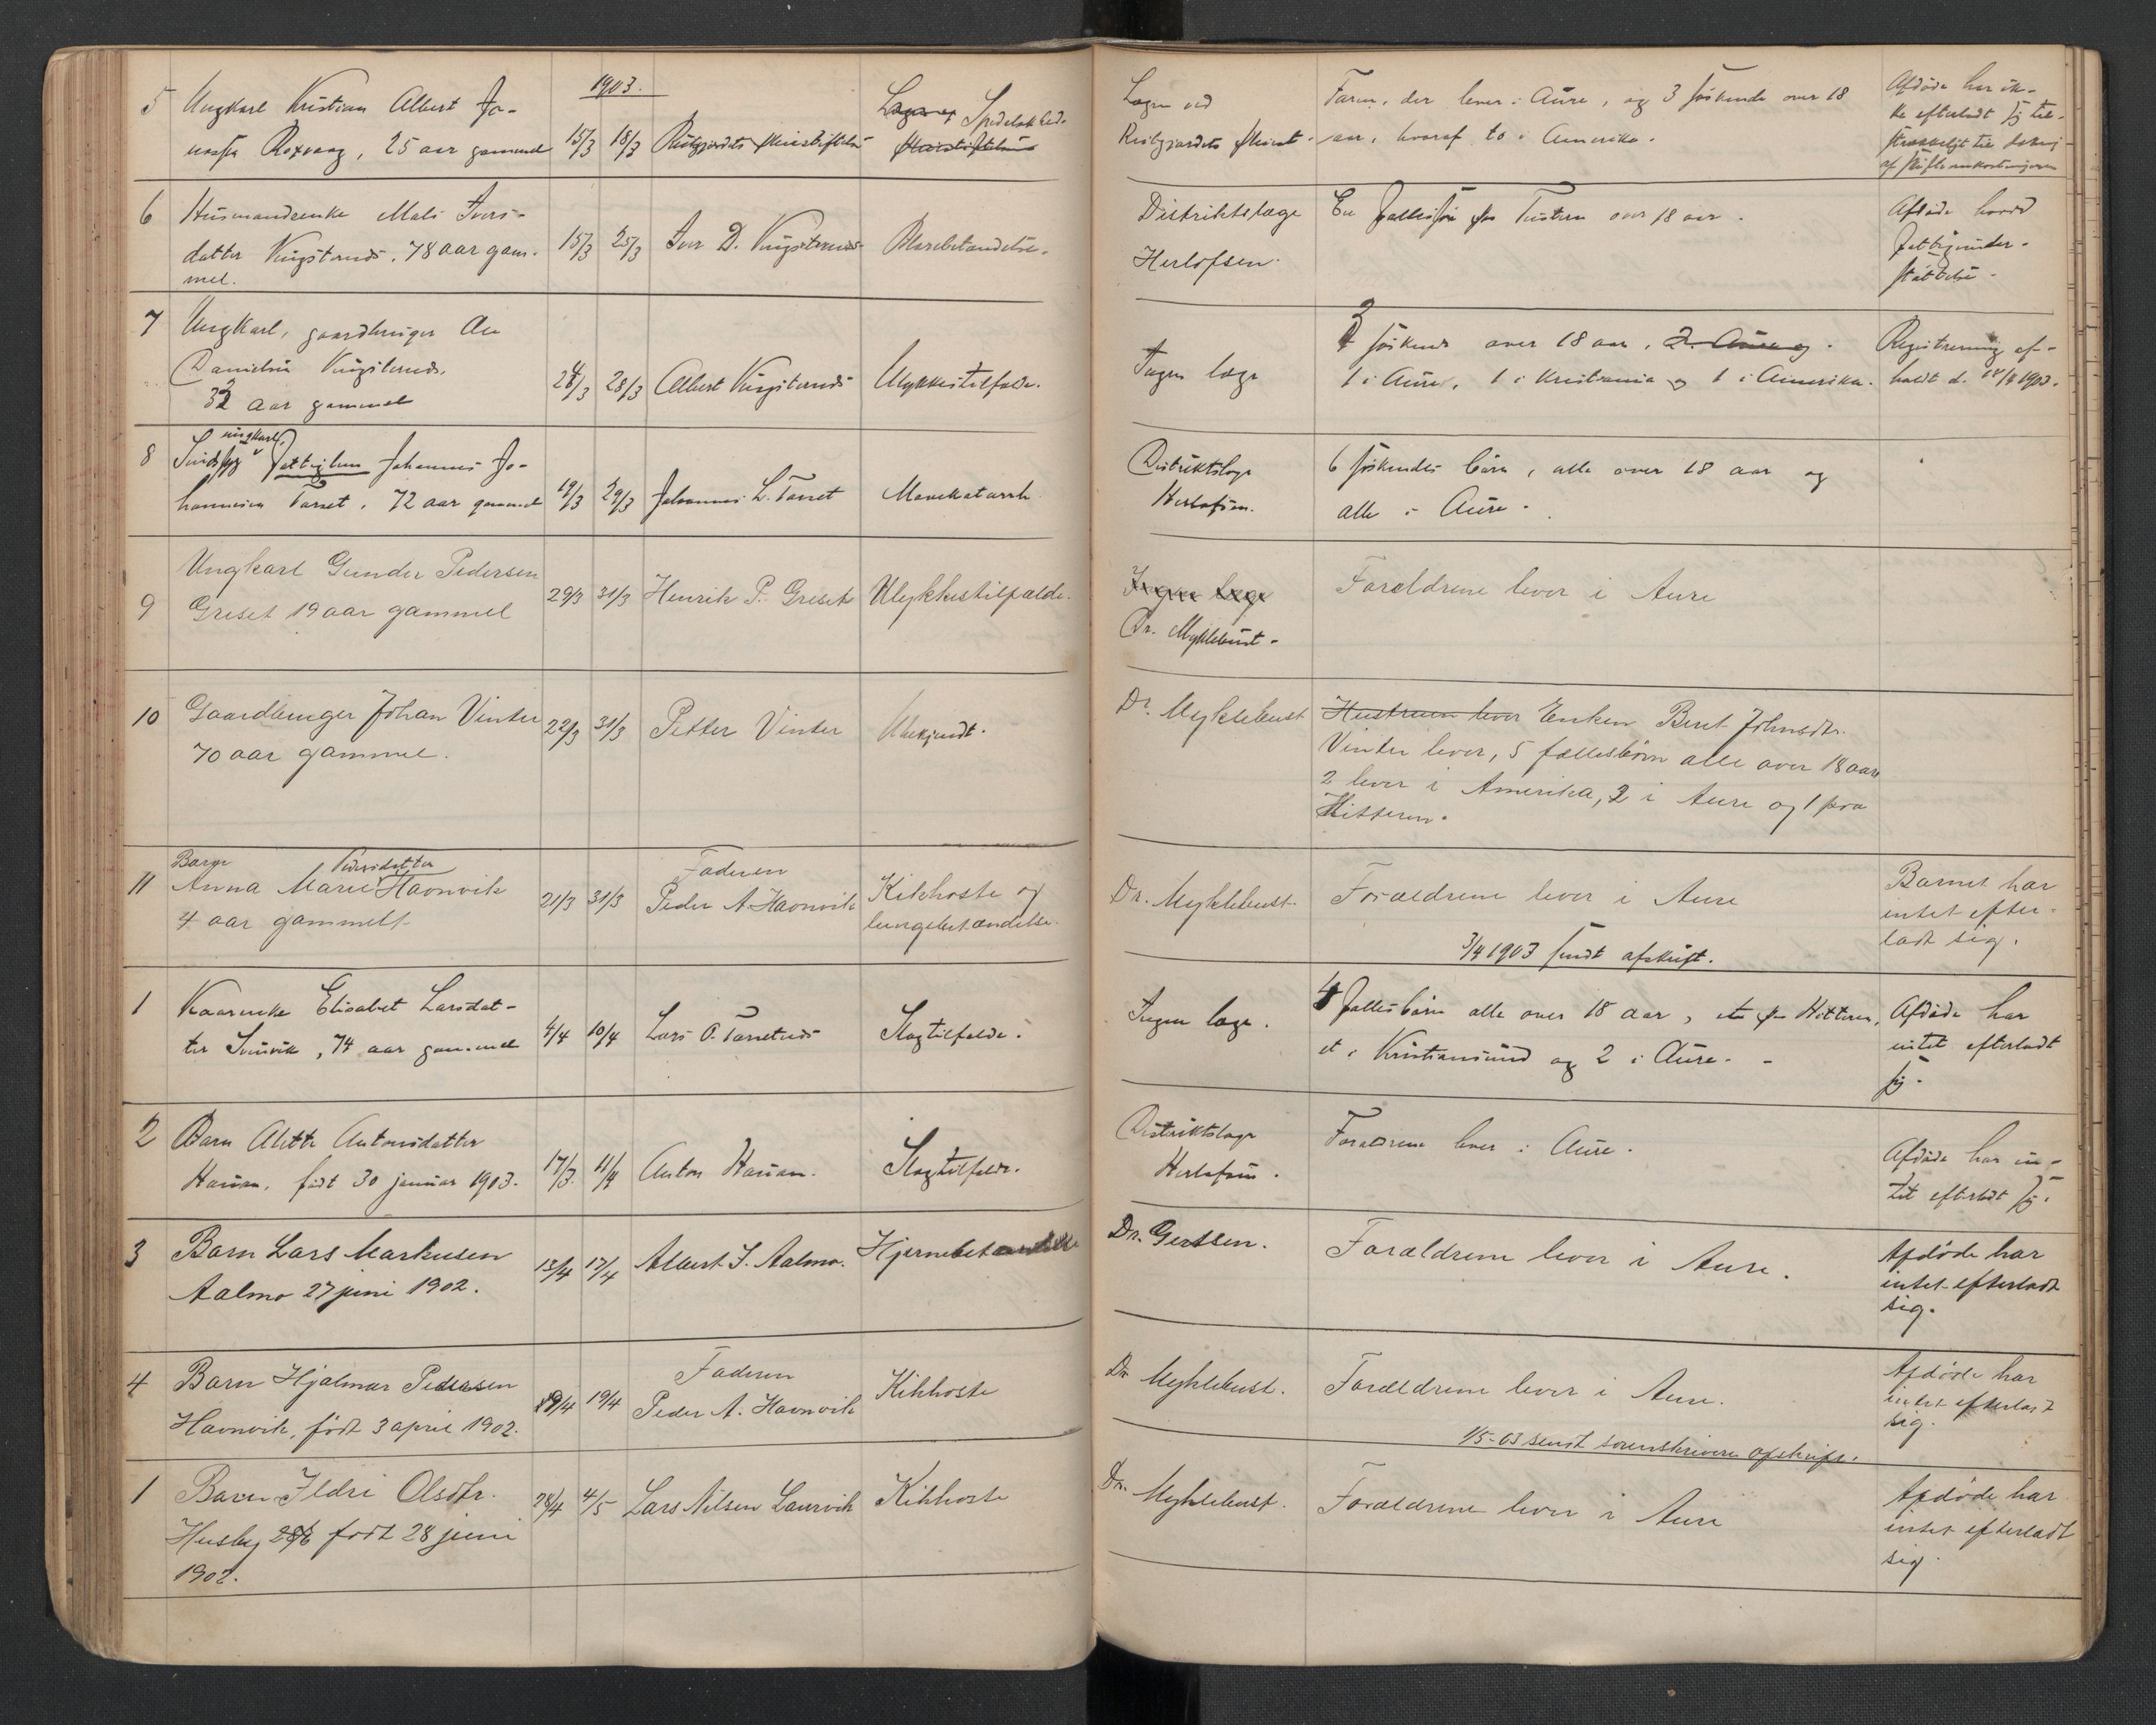 1903.
5 Ungkarl Kristian Albert Jo-
nassen Roxvaag, 25 aar gammel 15/3 18/3 Reitgjærdets Pleiestiftelse Spedalskhed.
6 Husmandsenke Mali Ivers-
datter Kingsternes. 78 aar gam-
mel. 15/3 25/3 Iver D. Kingsternes Blærebetændelse.
7 Ungkarl, gaardbruger
Danielsen Kingsternes.
32 aar gammel 24/3 28/3 Albert Kingsternes Ulykkestilfælde.
8 ungkarl,
Fattiglem Johannes Jo-
hannesen Tarset, 72 aar gammel 19/3 29/3 Johannes L. Tarset Mavekatarrh.
9 Ungkarl Gunder Pedersen
Griset 19 aar gammel 29/3 31/3 Henrik P. Griset Ulykkestilfælde.
10 Gaardbruger Johan Vinter
70 aar gammel. 22/3 31/3 Petter Vinter Ubekjendt.
11 Barn Pedersdatter
Anna Marie Havnvik
4 aar gammelt 21/3 31/3 Faderen
Peder A. Havnvik Kikhoste og
lungebetændelse.
1 Kaarenke Elisabet Larsdat-
ter , 74 aar gammel 4/4 10/4 Lars O. Tarsetnes Slagtilfælde.
2 Barn Alette Antonsdatter
født 30 januar 1903. 17/3 11/4 Anton Slagtilfælde.
3 Barn Lars Markusen
Aalmo 27 juni 1902. 13/4 17/4 Albert J. Aalmo. Hjernebetændelse
4 Barn Hjalmar Pedersen
Havnvik, født 3 april 1902. 19/4 19/4 Faderen
Peder A. Havnvik Kikhoste
1 Barn Ildri Olsdtr.
Husby født 28 juni
1902. 28/4 4/5 Lars Nilsen Laurvik Kikhoste
Lægen ved
Reitgjærdets Pleiest.
Faren, der lever i Aure, og 3 søskende over 18
aar, hvoraf to i Amerika.
Afdøde har ik-
ke efterladt sig til-
strækkeligt til dækning
af skifteomkostningerne
Distriktslæge
Herlofsen.
En fællessøn paa Tustern over 18 aar.
Afdøde havde
fattigunder-
støttelse.
Ingen læge
3 søskende over 18 aar, 2 i Aure og
1 i Aure, 1 i Kristiania og 1 i Amerika.
Registrering af-
holdt d. 28/4 1903.
Distriktslæge
Herlofsen.
6 søskendes børn, alle over 18 aar og
alle i Aure.
Ingen læge
Dr. Myklebust.
Forældrene lever i Aure
Dr. Myklebust
Hustruen lever Enken Beret Johnsdtr.
Vinter lever, 5 fællesbørn alle over 18 aar
2 lever i Amerika, 2 i Aure og 1 paa
Hitteren.
Dr. Myklebust.
Forældrene lever i Aure
Barnet har
intet efter-
ladt sig.
3/4 1903 sendt afskrift.
Ingen læge.
4 fællesbørn alle over 18 aar, et paa Hitteren,
et i Kristiansund og 2 i Aure. -
Afdøde har
intet efterladt
sig.
Distriktslæge
Herlofsen.
Forældrene lever i Aure.
Afdøde har in-
tet efterladt sig.
Dr. Gertsen.
Forældrene lever i Aure.
Afdøde har
intet efterladt
sig.
Dr. Myklebust.
Forældrene lever i Aure.
Afdøde har
intet efterladt
sig.
1/5-03 sendt sorenskriveren afskrift.
Dr. Myklebust.
Forældrene lever i Aure
Afdøde har
intet efterladt
sig.